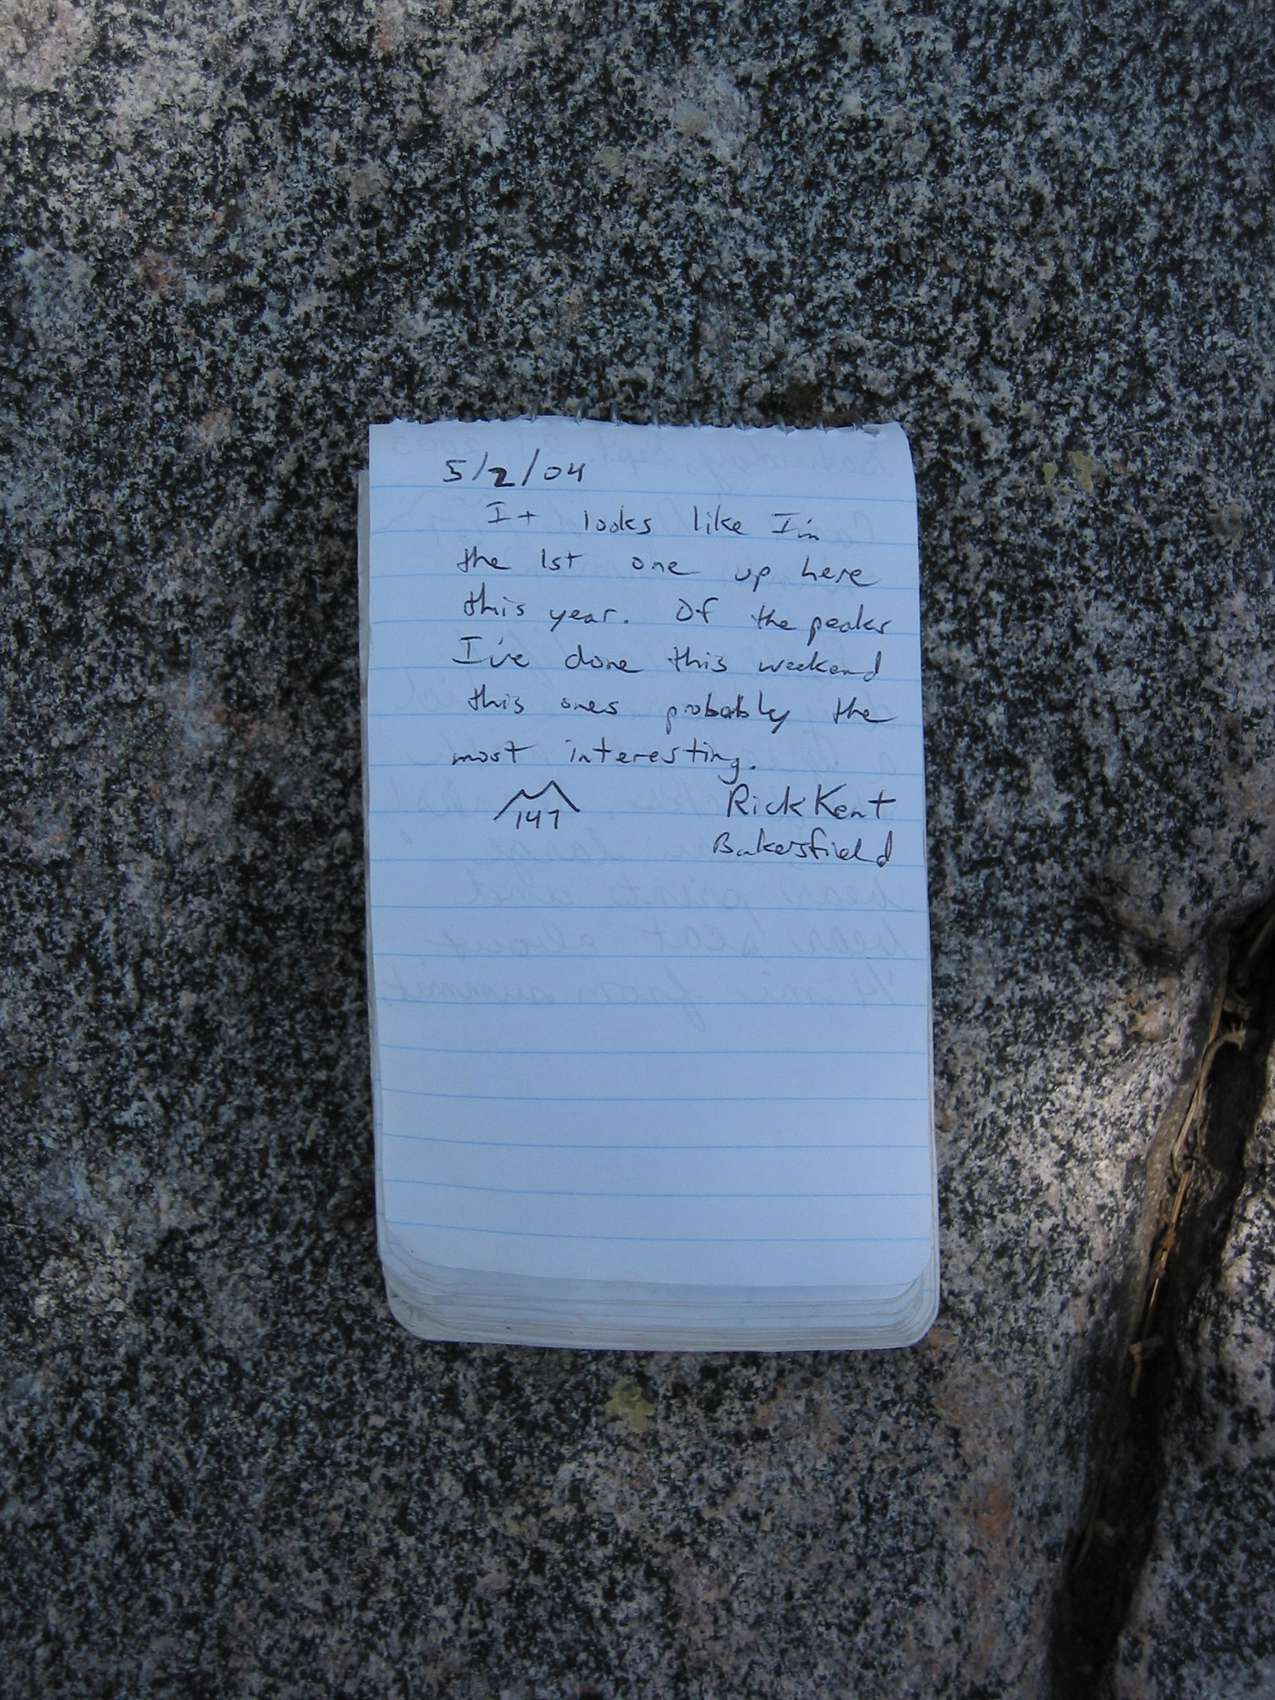 5/2/04
It looks like I'm
the 1st one up here
this year. Of the peaks
I've done this weekend
this ones probably the
most interesting.
147 Rick Kent
Bakersfield